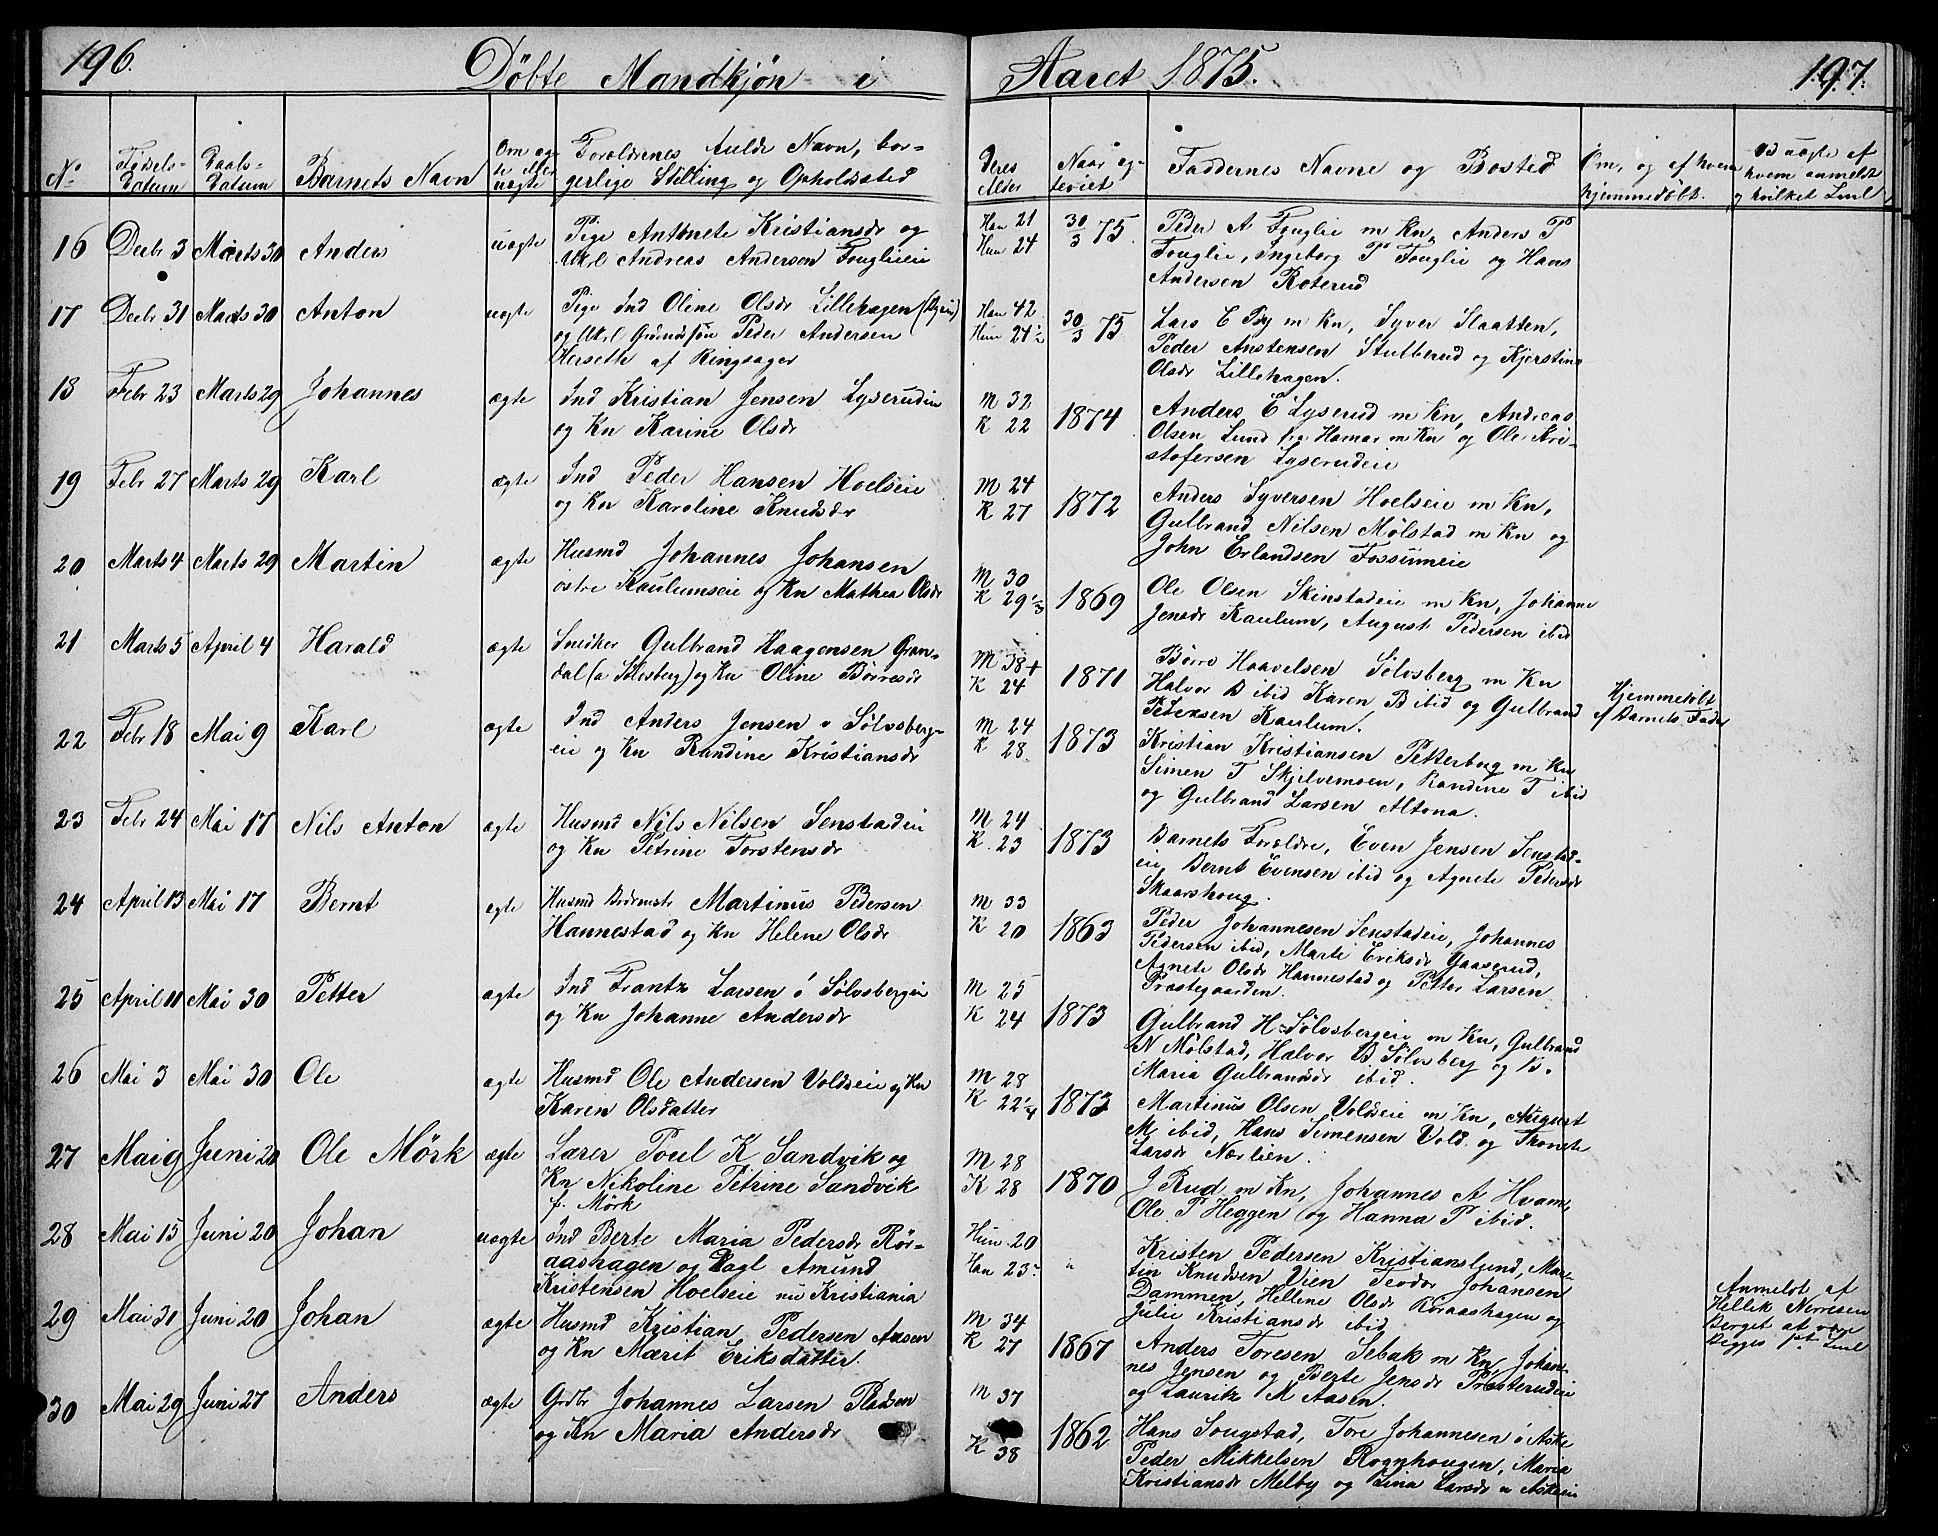 196.
Döbte Mandkjøn i
Aaret 1875.
197.
No
Fødsels-
Datum
Daabs-
Datum
Barnets Navn
Om æg-
te eller
uægte
Forældrenes fulde Navn, bor-
gerlige Stilling og Opholdssted
Deres
Alder
Naar eg-
teviet
Faddernes Navne og Bosted
Om, og af hvem
hjemmedøbt.
Ved uægte af
hvem anmeldt
og hvilket Leil
16 Decbr 3 Marts 30 Anders uægte Pige Antonete Kristiansdr og
Ukrl Andreas Andersen Fouglieie
Han 21
Hun 24
30/3 75.
Peder A Fouglie m Kn, Anders P
Fouglie, Ingeborg P Fouglie og Hans
Andersen Roterud
17 Decbr 31 Marts 30 Anton uægte Pige Ind Oline Olsdr Lillehagen
og Ukrl Grdmdsøn Peder Andersen
Herseth af Ringsager
Han 42
Hun 24½
30/3 75
Lars E By m Kn, Syver Slaatten,
Peder Anstensen Stulberud og Kjerstine
Olsdr Lillehagen.
18 Febr 23 Marts 29 Johannes ægte Ind Kristian Jensen Lyserudeie
og Kn Karine Olsdr
M 32
K 22
1874
Anders E Lyserud m Kn, Andreas
Olsen Lund fra Hamar m Kn og Ole Kri-
stofersen Lyserudeie
19 Febr 27 Marts 29 Karl ægte Ind Peder Hansen Hoelseie
og Kn Karoline Knudsdr
M 24
K 27
1872
Anders Syversen Hoelseie m Kn,
Gulbrand Nilsen Mølstad m Kn og
John Erlandsen Fossumeie
20 Marts 4 Marts 29 Martin ægte Husmd Johannes Johansen
østre Kaulumseie og Kn Mathea Olsdr
M 30
K 29⅓
1869
Ole Olsen Skinstadeie m Kn, Johanne
Jensdr Kaulum, August Pedersen ibid
21 Marts 5 April 4 Harald ægte Snidker Gulbrand Haagensen Gran-
dal (a Sølvsberg) og Kn Oline Børresdr
M 38
K 24
1871
Børre Haavelsen Sølvsberg m Kn
Halvor B ibid Karen B ibid og Gulbrand
Petersen Kaulum.
Hjemmedøbt
af Barnets Fader
22 Febr 18 Mai 9 Karl ægte Ind Anders Jensen Sølvsberg-
eie og Kn Randine Kristiansdr
M 24
K 28
1873
Kristian Kristiansen Petterbug m Kn
Simen T Skjelvemoen, Randine T ibid
og Gulbrand Larsen Altona.
23 Febr 24 Mai 17 Nils Anton ægte Husmd Nils Nilsen Senstadeie
og Kn Petrine Torstensdr
M 24
K 23
1873
Barnets Forældre, Even Jensen Senstad-
eie Bernt Evensen ibid og Agnete Pedersdr
Skaarshoug.
24 April 13 Mai 17 Bernt egte Husmd Martinus Pedersen
Hannestad og Kn Helene Olsdr
M 33
K 20
1863
Peder Johannesen Senstadeie, Johannes
Pedersen ibid, Marte Eriksdr Gaaserud,
Agnete Olsdr Hannestad og Petter Larsen
Præstegaarden.
25 April 11 Mai 30 Petter ægte Ind Frantz Larsen Sølvsbergeie
og Kn Johanne Andersdr
M 25
K 24
1873
Gulbrand H Sølvsbergeie m Kn, Gulbrand
N Mølstad, Halvor B Sølvsberg og B.
Maria Gulbrandsdr ibid.
26 Mai 3 Mai 30 Ole ægte Husmd Ole Andersen Voldseie og Kn
Karen Olsdatter
M 28
K 22¼
1873
Martinus Olsen Voldseie m Kn, August
M ibid, Hans Simensen Vold. og Tronete
Larsdr Nærlien.
27 Mai 9 Juni 20 Ole Mörk ægte Lærer Poul K Sandvik og
Kn Nikoline Petrine Sandvik
f. Mörk
M 28
K 28
1870
J Rud m Kn, Johannes A Hvam,
Ole P Heggen og Hanna P ibid.
28 Mai 15 Juni 20 Johan uægte Ind Berte Maria Pedersdr Rör-
aashagen og Dagl Amund
Kristensen Hoelseie nu Kristiania
Hun 20
Han 23
"
Kristen Pedersen Kristianslund, Mar-
tin Knudsen Vien Teodor Johansen
Dammen, Hellene Olsdr Röraashagen og
Julie Kristiansdr ibid
Anmeldt af
Hellik Nerresen
Berget at være
Begges 1ste Leil
29 Mai 31 Juni 20 Johan ægte Husmd Kristian Pedersen Aasen
og Kn Marit Eriksdatter.
M 34
K 27
1867
Anders Toresen Sebak m Kn, Johan-
nes Jensen og Berte Jensdr Præsterudeie
og Laurits M Aasen.
30 Mai 29 Juni 27 Anders ægte Grdbr Johannes Larsen Pladsen
og Kn Maria Andersdr
M 37
K 38
1862
Hans Sougstad, Tore Johannesen Aske
Peder Mikkelsen Rognhougen, Maria
Kristiansdr Melby og Lina Larsdr Askeeie